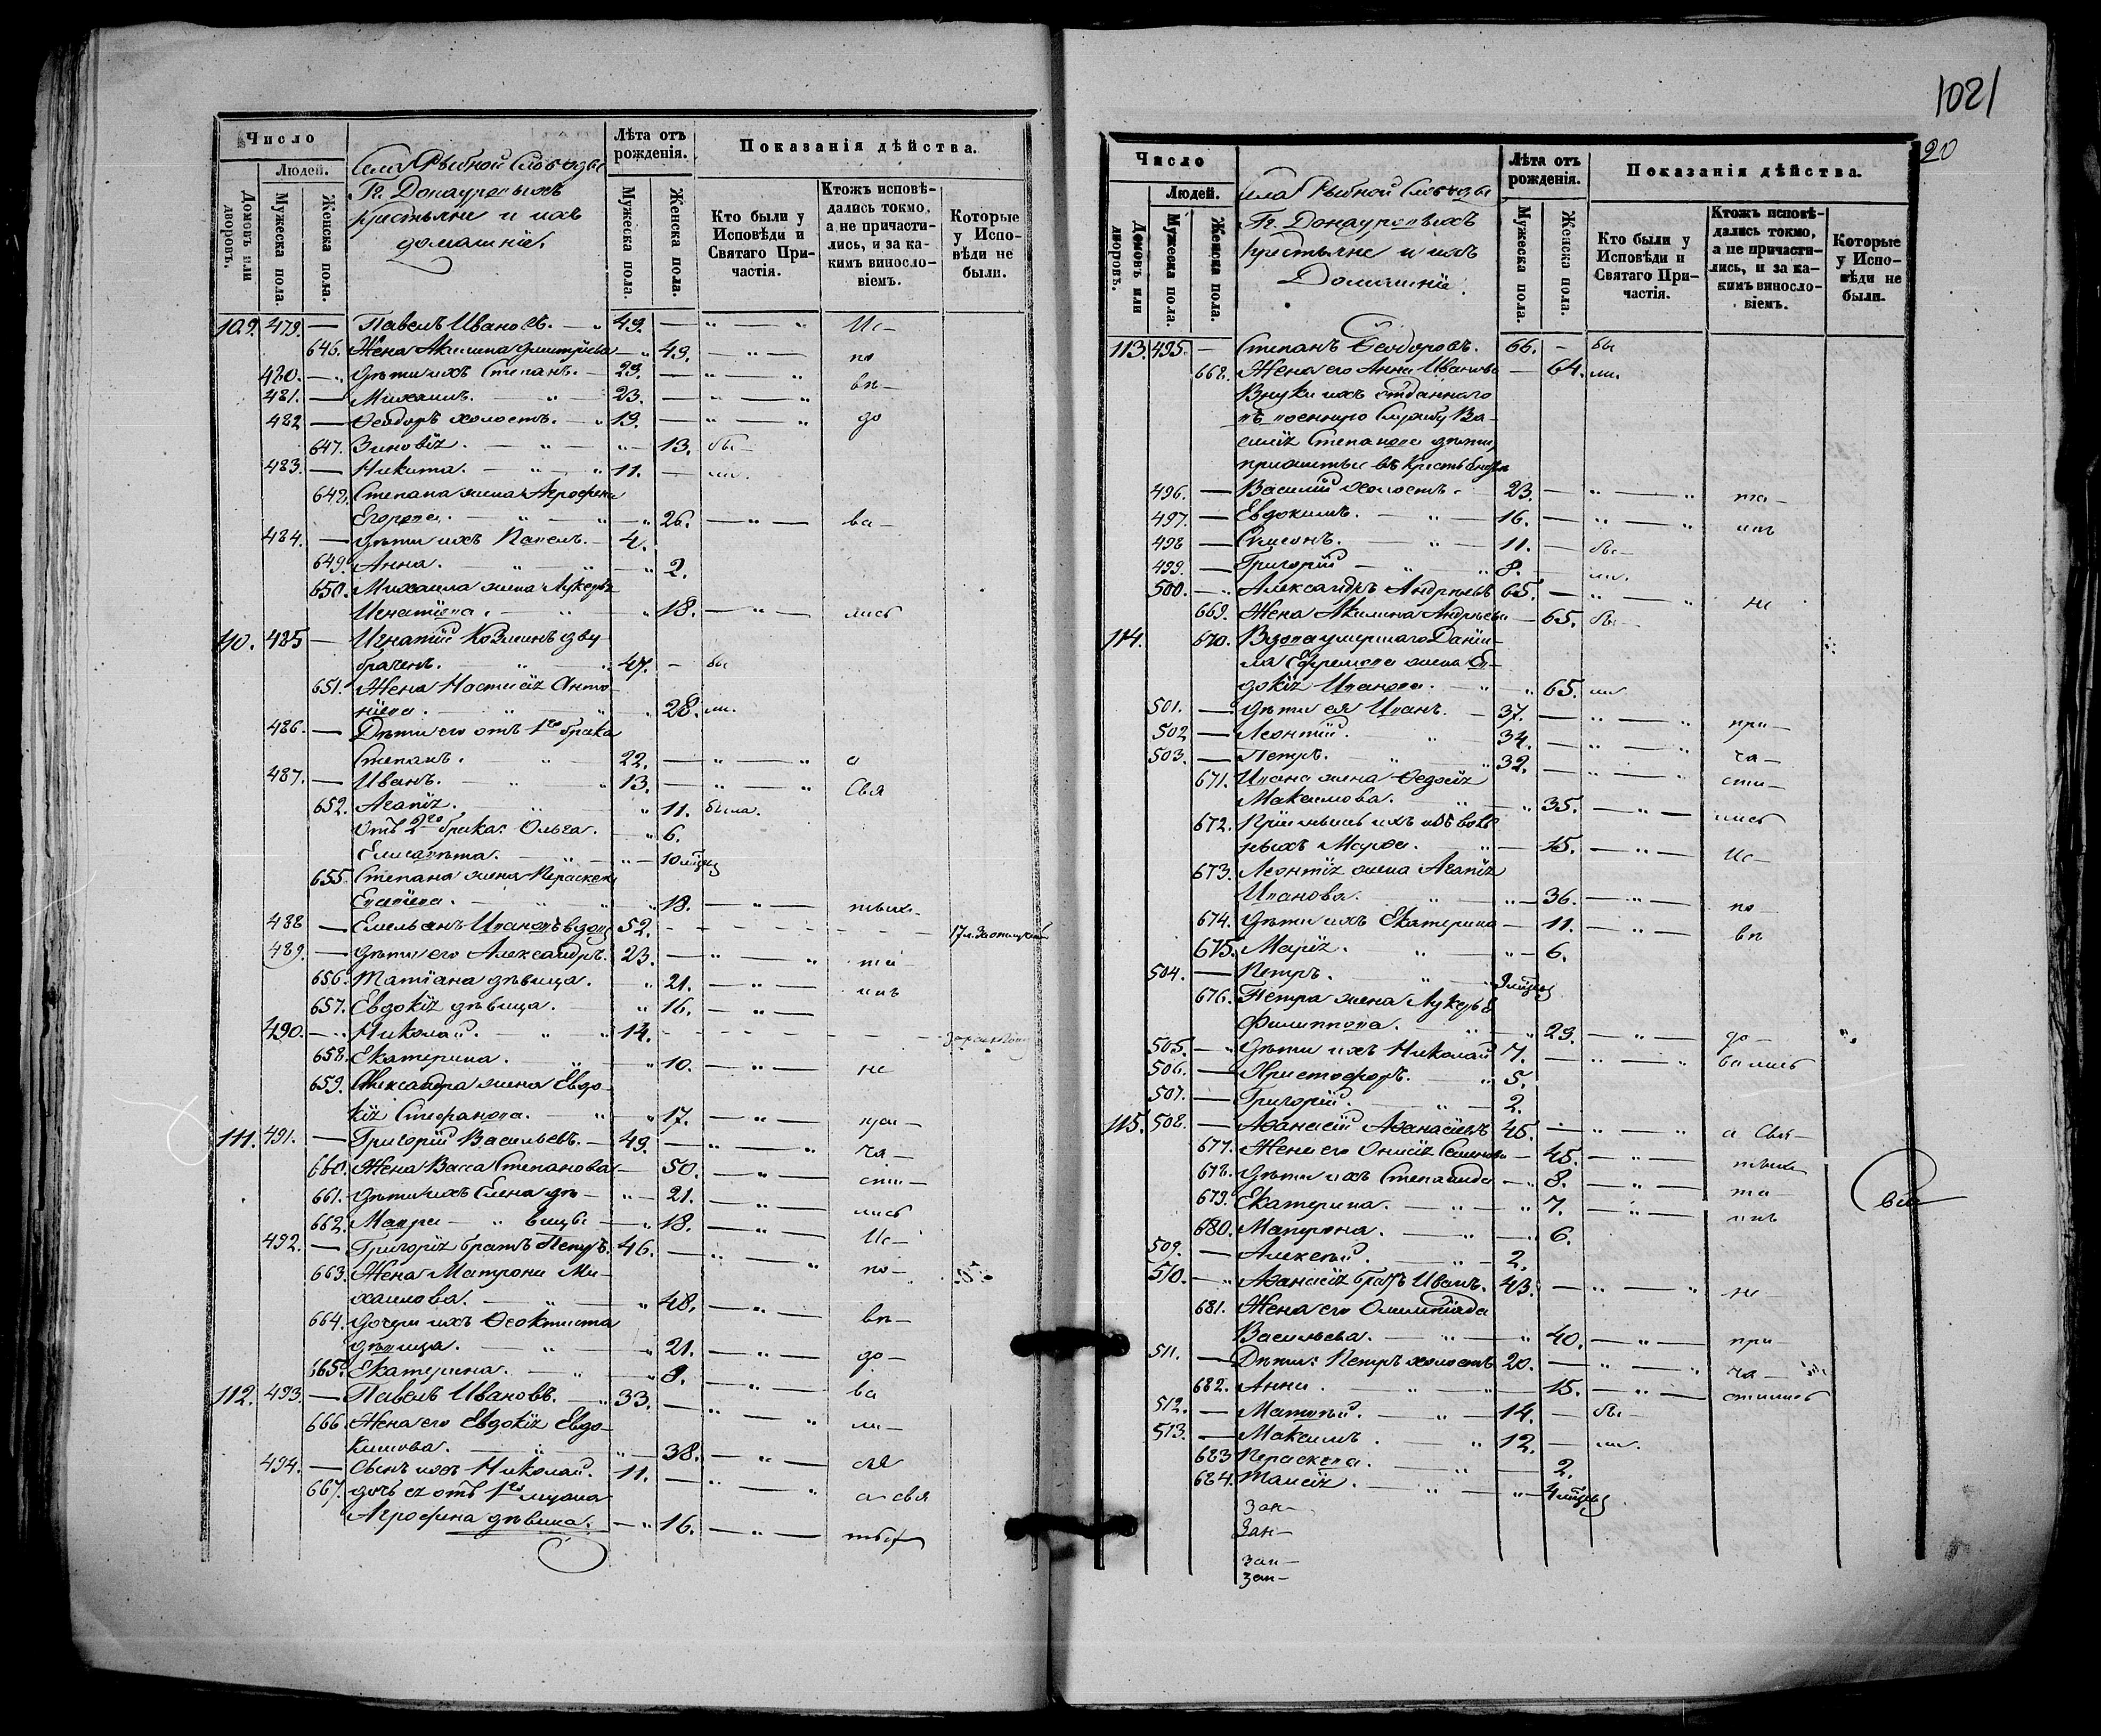 Число
Людей.
Домовъ или дворовъ.
Мужеска пола.
Женска пола.
Села Рыбной Слободы
Гг. Донауровыхъ
крестьяне и ихъ
домашнiе.
Лѣта отъ рожденiя.
Мужеска пола.
Женска пола.
Показанiя дѣйства.
Кто были у Исповѣди и Святаго При-частiя.
Ктожъ исповѣ-дались токмо, а не причасти-лись, и за ка-кимъ винословiемъ.
Которые у Испо-вѣди не были.
109. 479. — Павелъ Ивановъ. — 49. — Ис-
646. Жена Акилина Дмитрiева — 49. — по
480. — дѣти ихъ Степанъ. — 29. — вѣ-
481. — Михаилъ. — 23. —
482 — Ѳеодоръ холостъ. — 19. — до
647. Зиновiя. — 13. бы-
483. — Никита. — 11. — ли.
648. Степана жена Агрофена
Егорова. — 26. — ва-
484. — дѣти ихъ Павелъ. — 4.
649. Анна. — 2.
650. Михаила жена Лукерья
Игнатiева. — 18. — лись
110. 485 — Игнатiй Козминъ дву
браченъ. — 47. — бы
651. Жена Настасiя Анто-
нiева. — 28. ли.
486. — Дѣти его отъ 1го брака
Степанъ. — 22. — а
487. — Иванъ. — 13. — Свя
652. Агапiя. — 11. была.
Отъ 2го брака: Ольга. — 6.
Елисавета. — 10 мѣсяц
655. Степана жена Параскева
— 18. — тыхъ
488 — Емельянъ Ивановъ вдовъ 52.
489. — дѣти его Александръ. 23. — та-
656. Татiана дѣвица. — 21. — инъ
657. Евдокiя дѣвица. — 16. —
490. — Николай. — 14.
658. Екатерина. — 10. — не
659. Александра жена Евдо-
кiя Стефанова. — 17. — при-
111. 491. — Григорiй Васильевъ. — 49. — ча-
660. Жена Васса Степанова — 50. — сти-
661. дѣти ихъ Елена дѣ- — 21. — лись
662. Мавра — вицы — 18. — Ис-
492. — Григорiя братъ Петръ. 46. — по-
663. Жена Матрона Ми-
хаилова. — 48. — вѣ-
664. дочери ихъ Ѳеоктиста
дѣвица. — 21. — до-
665. Екатерина. — 8.
112. 493. — Павелъ Ивановъ. — 33. — ва
666. Жена его Евдокiя Евдо-
кимова. — 38. — ли-
494. — Сынъ ихъ Николай. 11. — ся
667. дочь ея отъ 1го мужа — а свя
Агрофена дѣвица. — 16. — тых
1021
20
Число
Людей.
Домовъ или дворовъ.
Мужеска пола.
Женска пола.
села Рыбной Слободы
Гг. Донауровыхъ
крестьяне и ихъ
Домашнiе.
Лѣта отъ рожденiя.
Мужеска пола.
Женска пола.
Показанiя дѣйства.
Кто были у Исповѣди и Святаго При-частiя.
Ктожъ исповѣ-дались токмо, а не причасти-лись, и за ка-кимъ винословiемъ.
Которые у Испо-вѣди не были.
113. 495. — Степанъ Ѳеодоровъ. 66. — бы
668. Жена его Анна Иванова — 64. ли.
Внуки ихъ отданнаго
въ военную службу Ва-
силiя Степанова дѣти,
496. — Василiй холостъ. 23. — та-
497. — Евдокимъ. — 16. — инъ
498 — Симеонъ. — 11. — бы-
499. — Григорiй — 8. — ли.
500. — Александръ Андреевъ 65. — не
669. Жена Акилина Андреева — 65. бы-
114. 670. Вдова умершаго Данiи-
ла Ефремова жена Ев-
докiя Иванова. — 65. ли
501. — дѣти ея Иванъ. — 37. — при-
502 — Леонтiй. — 34. — ча-
503. — Петръ. — 32. — сти-
671. Ивана жена Ѳедосiя
Максимова. — 35. — лись
672. Прiемышъ ихъ
Марѳа. — 15. — Ис-
673. Леонтiя жена Агапiя
Иванова. — 36. — по
674. дѣти ихъ Екатерина — 11. — вѣ
675. Марiя. — 6.
504. — Петръ.
676. Петра жена Лукерья
Филиппова. — 29. — до-
505. — дѣти ихъ Николай 7. — вались
506. — Христофоръ. — 5.
507. — Григорiй. — 2.
115. 508. — Аѳанасiй Аѳанасiевъ 45. — а Свя-
677. Жена его Онисiя Семенова — 45. — тыхъ
678. дѣти ихъ Степанида — 8. — та-
679. Екатерина. — 7. — инъ
680. Матрона. — 6.
509. — Алексѣй. — 2.
510. — Аѳанасiя братъ Иванъ. 43. — не-
681. Жена его Олимпiада
Васильева. — 40. — при-
511. — Дѣти: Петръ холостъ 20. — ча-
682. Анна. — 15. — стились
512. — Матвѣй. — 14. — бы-
513. — Максимъ. — 12. — ли.
683 Параскева. — 2.
684. Таисiя. — 4 мѣсяц